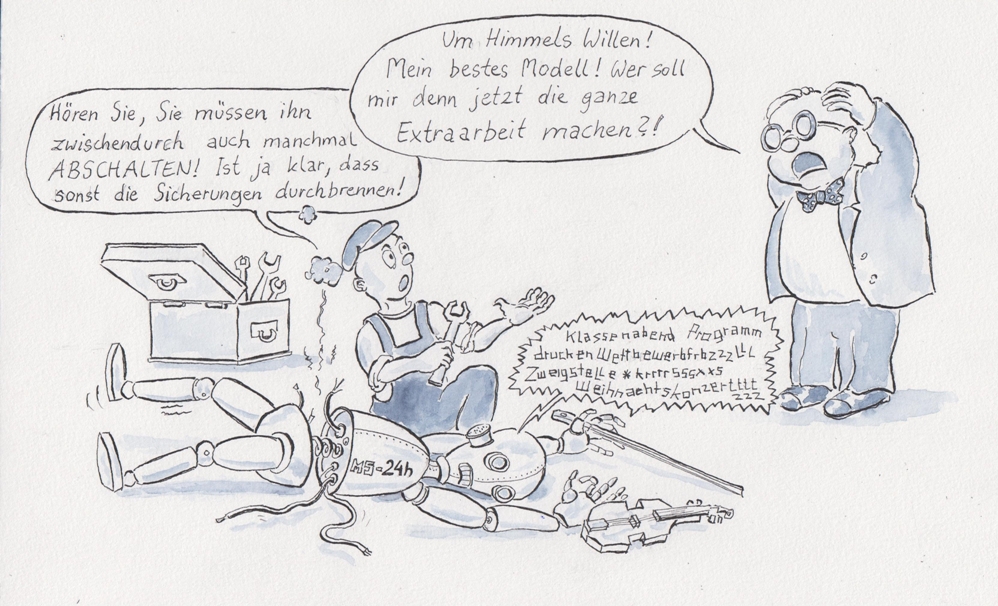 Hören Sie, Sie müssen ihn
zwischendurch auch manchmal
ABSCHALTEN! Ist ja klar, dass
sonst die Sicherungen durchbrennen!
Um Himmels Willen!
Mein bestes Modell! Wer soll
mir denn jetzt die ganze
Extraarbeit machen?!
Klassenabend Programm
drucken Wettbewerbfrbzzzzlll
Zweigstelle *krrrrsssxxs
Weihnachtskonzertttt
zzz
MS-24h